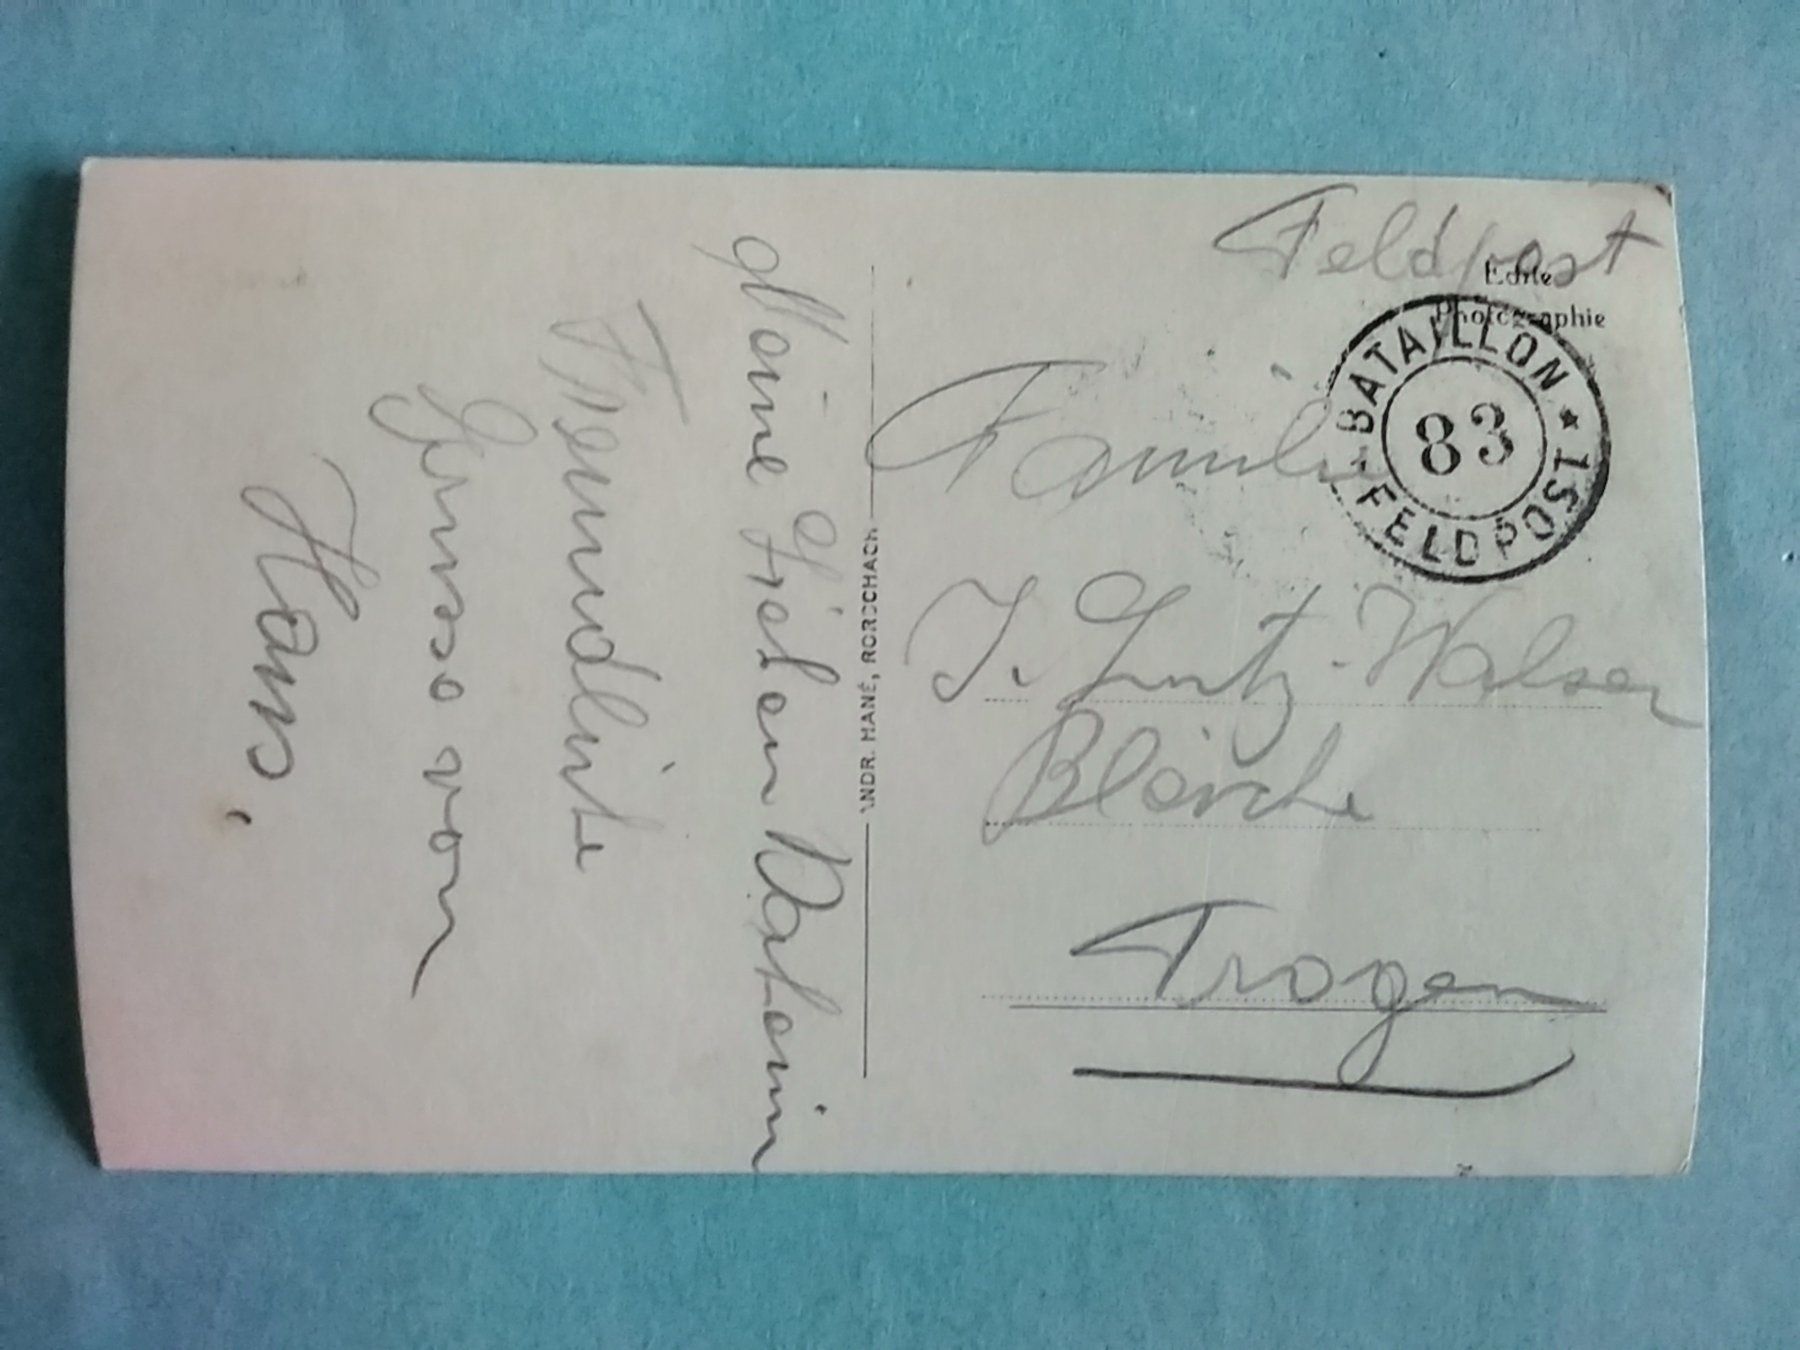 Meine Lieben Daheim
Freundliche
Grüsse von
Hans.
ANDR. HANE, RORSCHACH
Feldpost
Echte
Photographie
BATAILLON * FELDPOST *
83
Familie
J. Lutz-Walser
Bleiche
Trogen